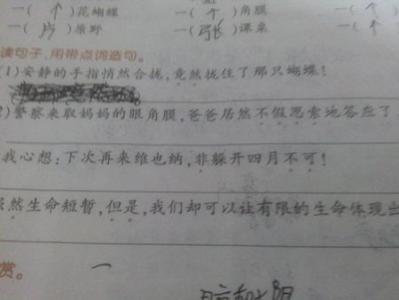 一(个)花蝴蝶 一(个)角膜
一(片)原野 一(张)课桌
读句子,用带点词造句。
(1)安静的手指悄然合拢,竟然拢住了那只蝴蝶!
2)警察来取妈妈的眼角膜,爸爸居然不假思索地答应了
我心想:下次再来维也纳,非躲开四月不可!
虽然生命短暂,但是,我们却可以让有限的生命体现出
赏。 一